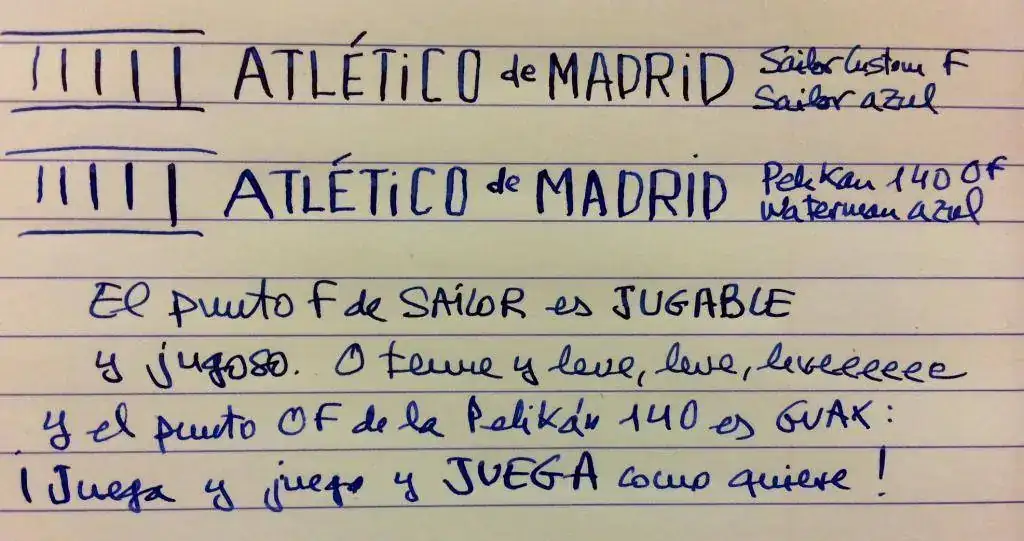 ATLÉTiCO de MADRiD Sailor Custom F
Sailor azul
ATLÉTiCO de MADRiD Pelikan 140 OF
Waterman azul
El punto F de SAiLOR es JUGABLE
y jugoso. O tenue y leve, leve, leveeeeee
y el punto OF de la Pelikán 140 es GUAX:
¡Juega y juega y JUEGA como quiere!